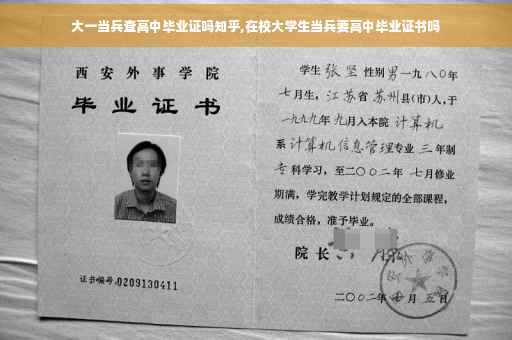 大一当兵查高中毕业证吗知乎,在校大学生当兵要高中毕业证书吗
西安外事学院
毕业证书
证书编号:0209130411
学生 张坚 性别男一九八〇年
七月生，江苏省苏州县(市)人,于
一九九九年九月入本院 计算机
系 计算机信息管理专业 三 年制
专科学习，至二〇〇二年 七月修业
期满，学完教学计划规定的全部课程，
成绩合格，准予毕业。
院长
二〇〇二年 月五日